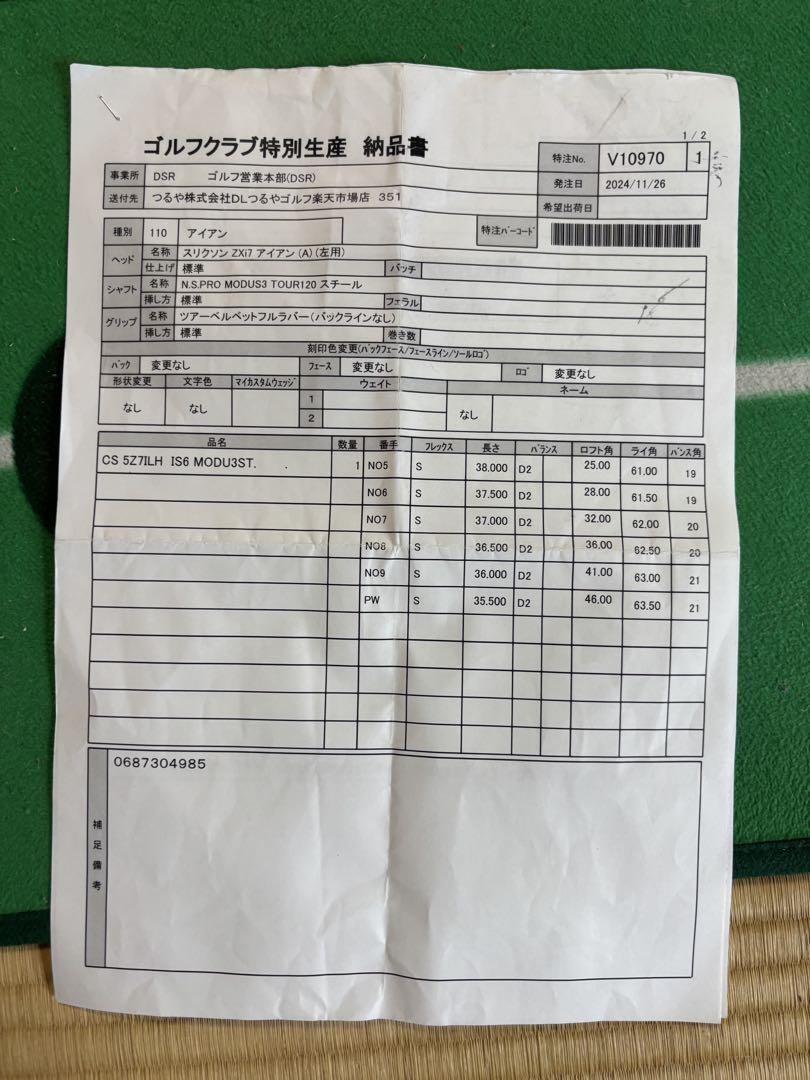 1 / 2
ゴルフクラブ特別生産 納品書
特注No. V10970 1
事業所 DSR ゴルフ営業本部(DSR)
発注日 2024/11/26
送付先 つるや株式会社DLつるやゴルフ楽天市場店 351
希望出荷日
種別 110 アイアン
特注バーコード
ヘッド 名称 スリクソン ZXi7 アイアン (A) (左用)
仕上げ 標準 バッチ
シャフト 名称 N.S.PRO MODUS3 TOUR120 スチール
挿し方 標準 フェラル
グリップ 名称 ツアーベルベットフルラバー(バックラインなし)
挿し方 標準 巻き数
刻印色変更(バックフェース/フェースライン/ソールロゴ)
バック 変更なし フェース 変更なし ロゴ 変更なし
形状変更 文字色 マイカスタムウェッジ ウェイト ネーム
なし なし 1 なし
2
品名 数量 番手 フレックス 長さ バランス ロフト角 ライ角 バンス角
CS 5Z7ILH IS6 MODU3ST. 1 NO5 S 38.000 D2 25.00 61.00 19
NO6 S 37.500 D2 28.00 61.50 19
NO7 S 37.000 D2 32.00 62.00 20
NO8 S 36.500 D2 36.00 62.50 20
NO9 S 36.000 D2 41.00 63.00 21
PW S 35.500 D2 46.00 63.50 21
0687304985
補足備考